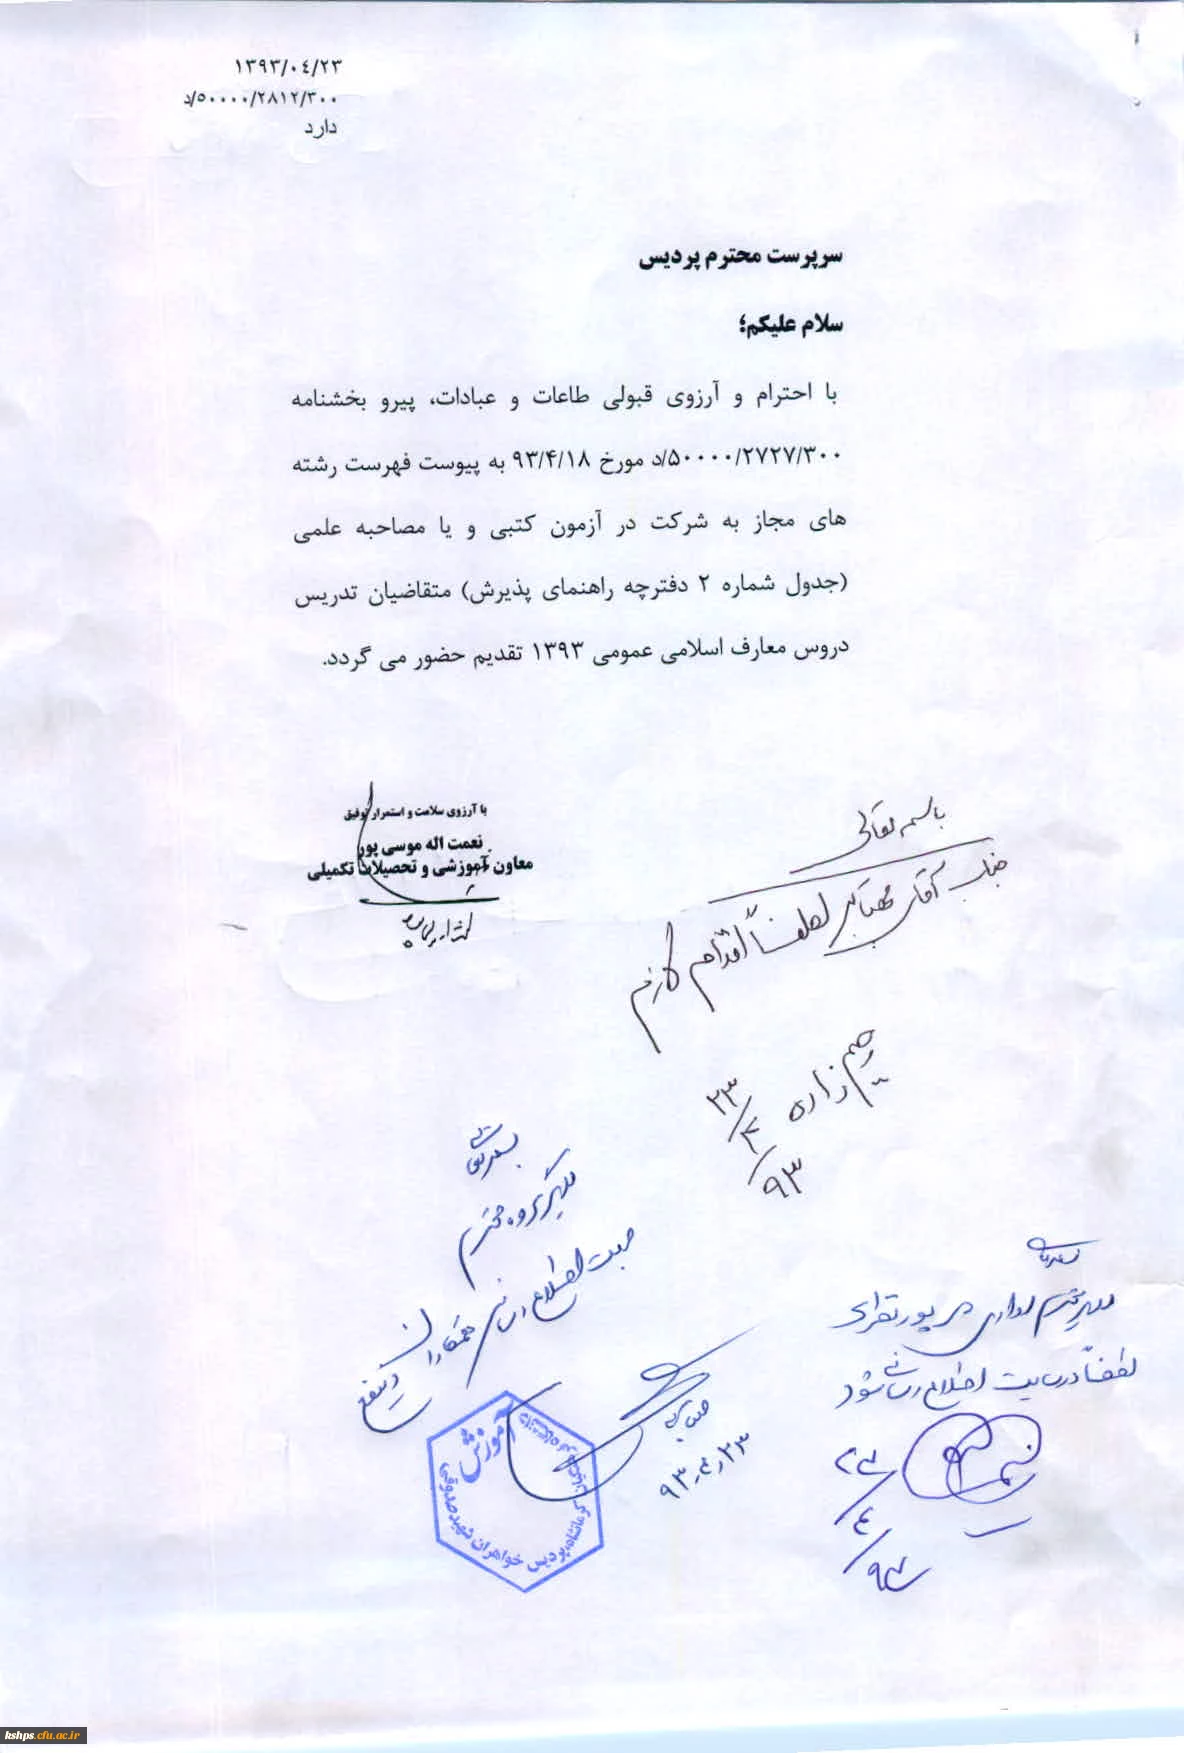 ۱۳۹۳/۰۴/۲۳
۵۰۰۰۰/۲۸۱۲/۳۰۰/د
دارد
سرپرست محترم پردیس
سلام علیکم؛
با احترام و آرزوی قبولی طاعات و عبادات، پیرو بخشنامه
۵۰۰۰۰/۲۷۲۷/۳۰۰/د مورخ ۹۳/۴/۱۸ به پیوست فهرست رشته
های مجاز به شرکت در آزمون کتبی و یا مصاحبه علمی
(جدول شماره ۲ دفترچه راهنمای پذیرش) متقاضیان تدریس
دروس معارف اسلامی عمومی ۱۳۹۳ تقدیم حضور می گردد.
با آرزوی سلامت و استمرار توفیق
نعمت اله موسی پور
معاون آموزشی و تحصیلات تکمیلی
باسمه تعالی
جناب آقای لطفاً اقدام لازم
رحیم زاده
۲۳/۴/۹۳
بسمه تعالی
مدیر گروه محترم
جهت اطلاع رسانی همکاران ذینفع
۹۳،۴،۲۳
بسمه تعالی
لطفاً در سایت اطلاع رسانی شود
۲۳/۴/۹۳
آموزش
پردیس خواهران شهید صدوقی
kshps.cfu.ac.ir